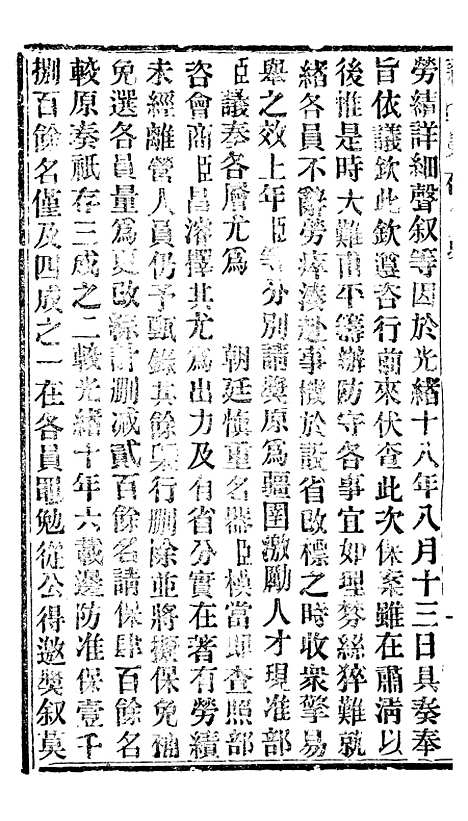 勞績詳細聲叙等因於光緒十八年八月十三日具奏奉
旨依議欽此欽遵咨行前來伏查此次保案雖在肅清以
後惟是時大難甫平籌辦防守各事宜如理棼絲猝難就
緒各員不辭勞瘁湊赴事機於設省改標之時收衆擎易
舉之效上年臣等分別請奬原爲疆圉激勵人才現准部
臣議奉各層尤爲 朝廷慎重名器臣模當即查照部
咨會商臣昌濬擇其尤爲出力及有省分實在著有勞績
未經離營人員仍予甄錄其餘槩行刪除並將擬保免補
免選各員量爲更改綜計刪减貳百餘名請保肆百餘名
較原奏祇存三成之二較光緒十年六載邊防准保壹千
捌百餘名僅及四成之一在各員黽勉從公得邀奬叙莫